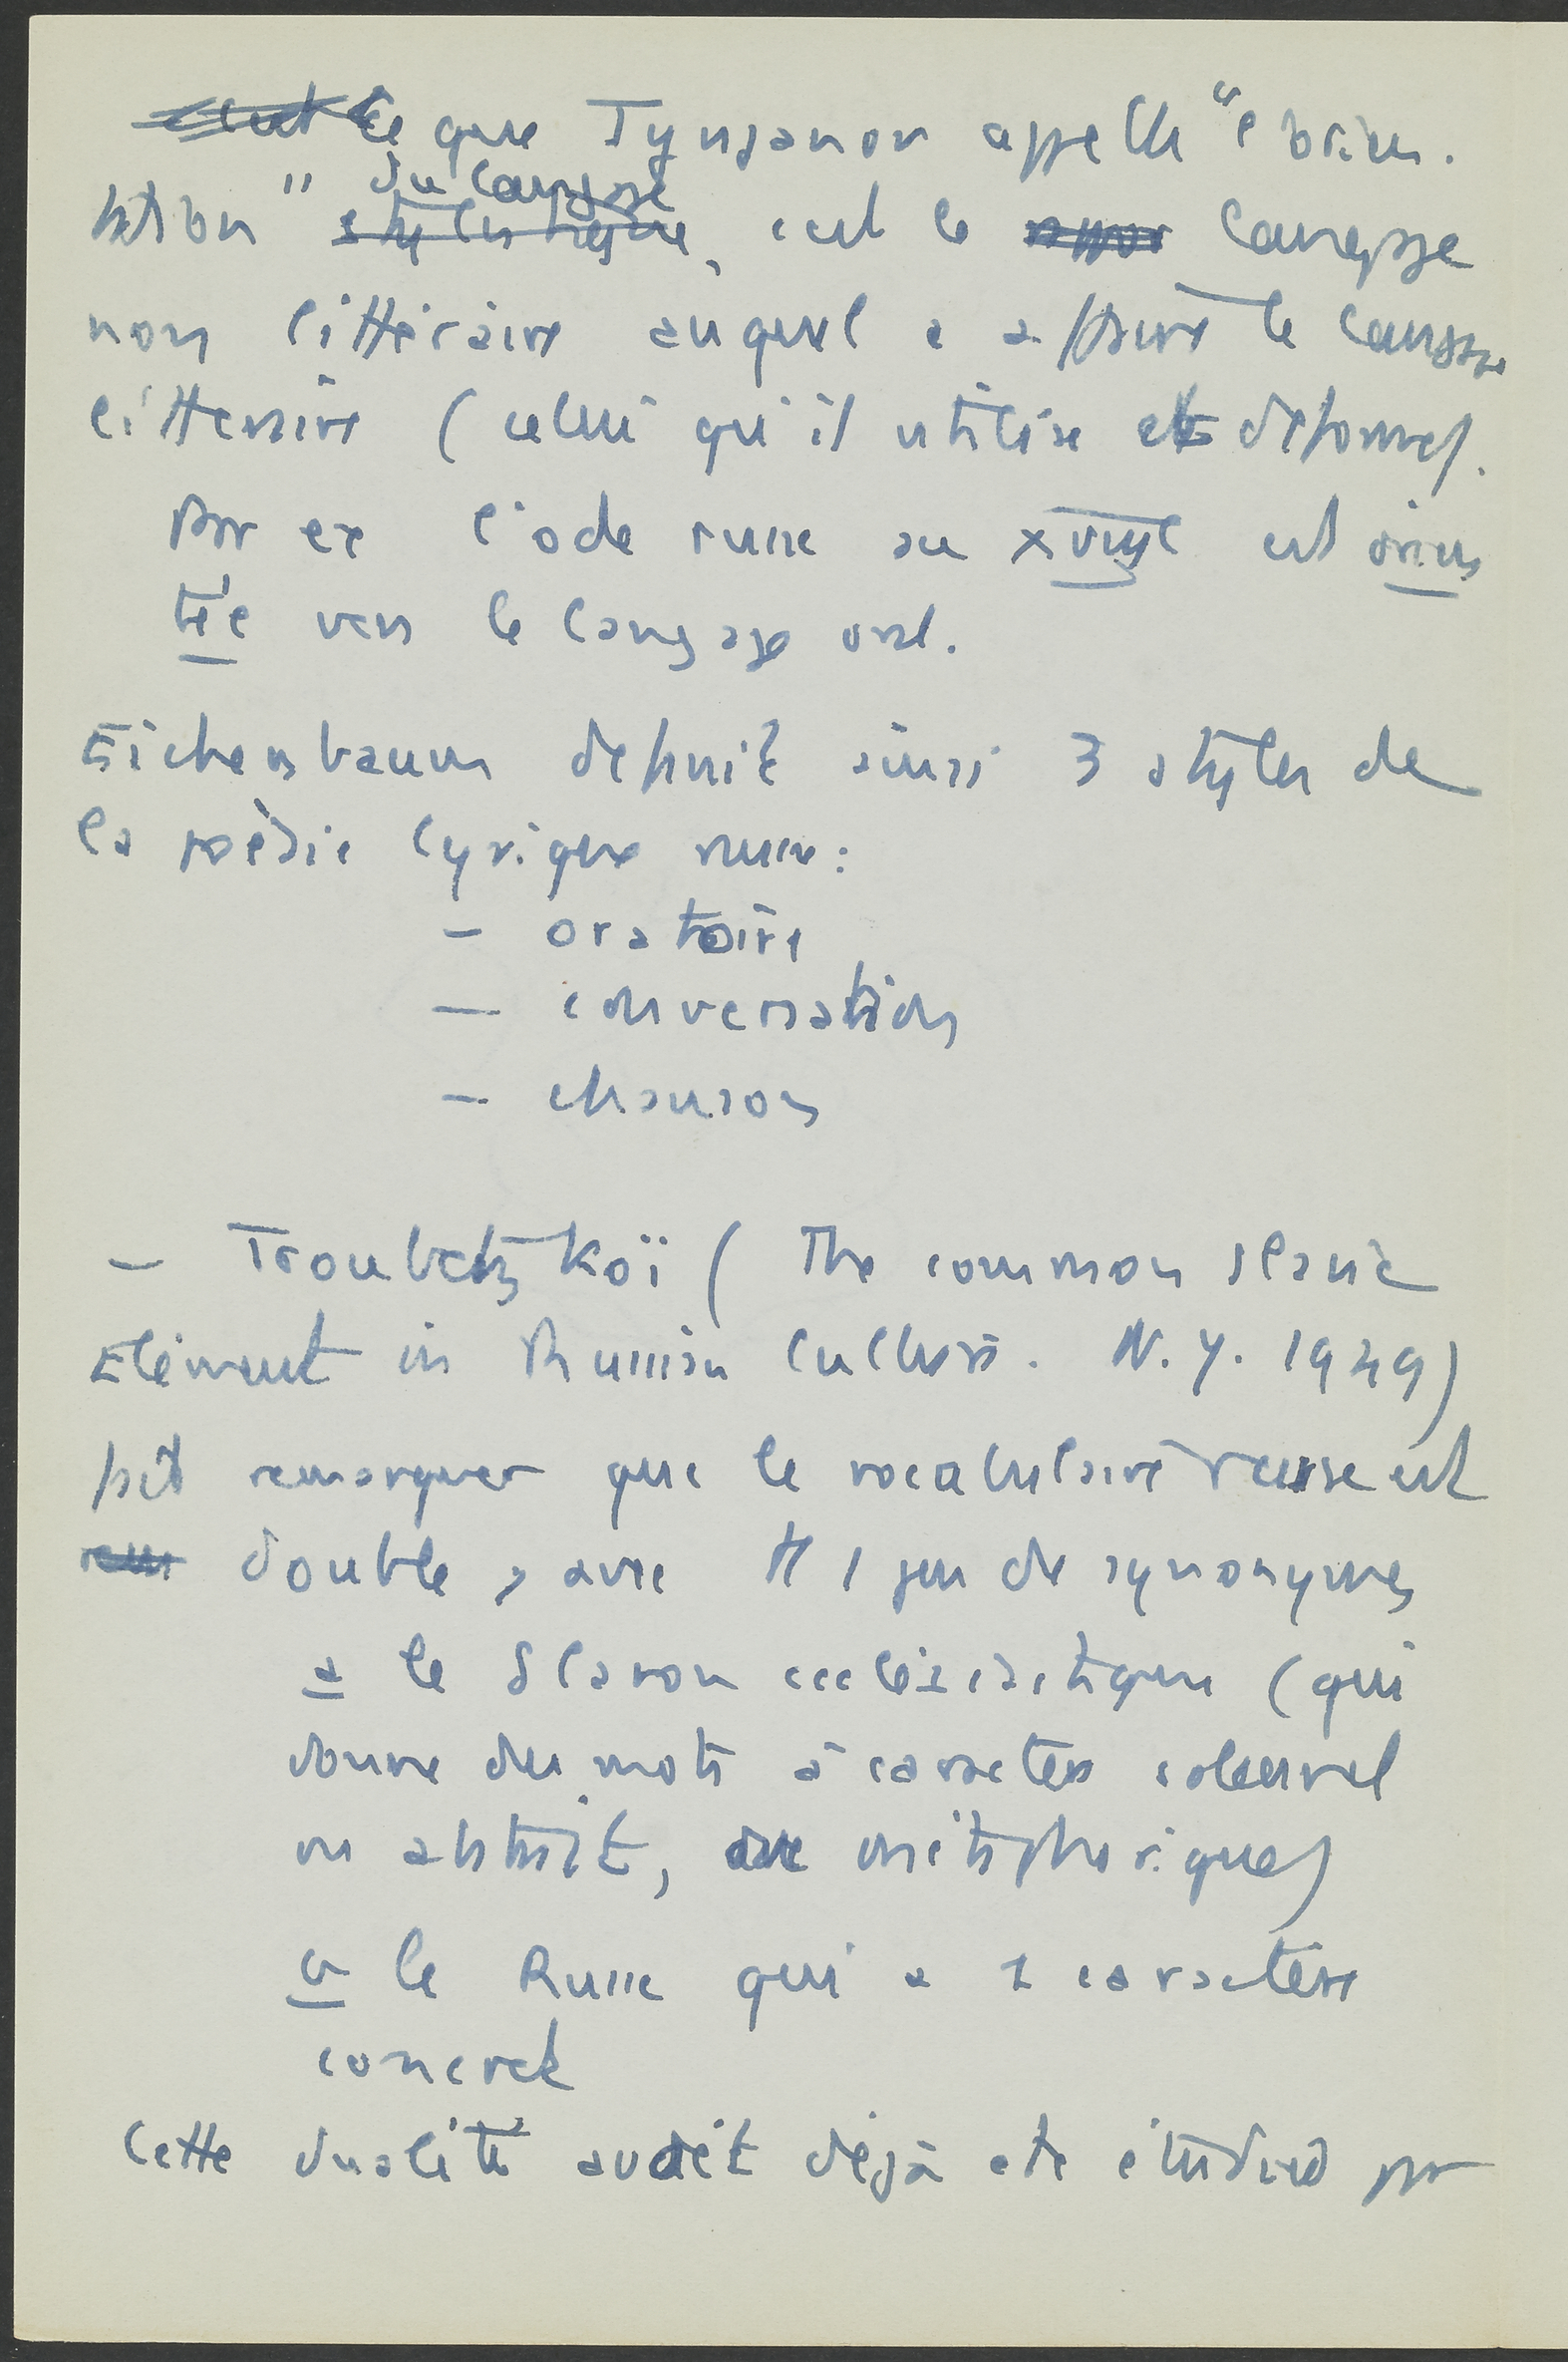 Ce que Tynjanov appelle "l'orien-
tation" du langage, c'est le langage
non littéraire auquel a affaire le langage
littéraire (celui qu'il utilise et déforme).
Par ex l'ode russe au XVIIIe est orien
tée vers le langage oral.
Eichenbaum définit ainsi 3 styles de
la poésie lyrique russe :
- oratoire
- conversation
- chanson
- Troubetzkoï (The common slavic
Element in Russian Culture. N.Y. 1949)
fait remarquer que le vocabulaire russe est
double, avec tt 1 jeu de synonymes
a le Slavon ecclésiastique (qui
donne des mots à caractère solennel
ou abstrait, ou métaphorique)
b le Russe qui a 1 caractère
concret
Cette dualité avait déjà été étudiée par